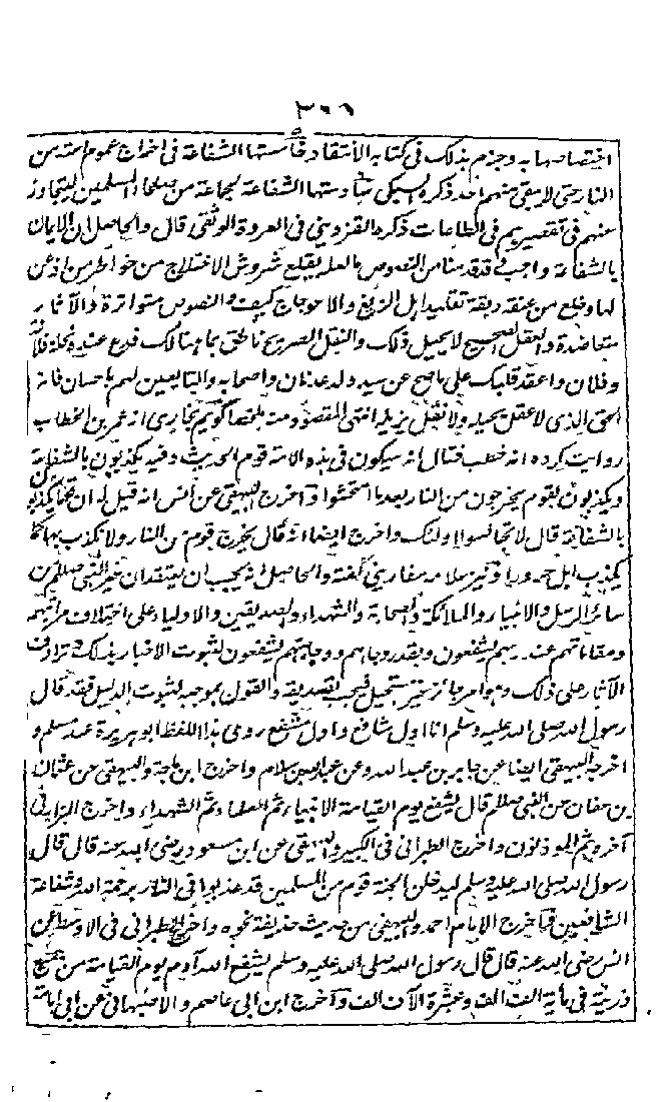 ٣٦٦
اختصاصها به وجزم بذلك فى كتابه الانتقاد خامستها الشفاعة فى اخراج عموم امته من
النار حتى لا يبقى منهم احد ذكره السبكى سادستها الشفاعة لجماعة من صلحاء المسلمين ليتجاوز
عنهم فى تقصيرهم فى الطاعات ذكره القزوينى فى العروة الوثقى قال والحاصل ان الايمان
بالشفاعة واجب فقد قدمنا من النصوص بالعلم يقلع شروش الاختلاج من خواطر من اذعن
لها وخلع من عنقه ربقة تقليد اهل الزيغ والاعوجاج كيف والنصوص متواترة والآثار
متعاضدة والعقل الصحيح لا يحيل ذلك والنقل الصريح ناطق بما هنالك فدع عنك نحلة فلان
وفلان واعقد قلبك على ما صح عن سيد ولد عدنان واصحابه والتابعين لهم باحسان فانه
الحق الذى لا عقل يحيله ولا نقل يزيله انتهى المقصود منه ملخصا گويم بخارى از عمر بن الخطاب
روايت كرده انه خطب فقال انه سيكون فى هذه الامة قوم الحديث وفيه يكذبون بالشفاعة
ويكذبون بقوم يخرجون من النار بعد ما امتحشوا واخرج البيهقى عن انس انه قيل له ان قوما يكذبون
بالشفاعة قال لا تجالسوا اولئك واخرج ايضا انه قال يخرج قوم من النار ولا نكذب بها كما
يكذب اهل حروراء ونيز علامه سفارينى گفته والحاصل انه يجب ان يعتقد ان غير النبى صلعم من
سائر الرسل والانبياء والملائكة والصحابة والشهداء والصديقين والاولياء على اختلاف مراتبهم
ومقاماتهم عند ربهم يشفعون وبقدر جاههم ووجاهتهم يشفعون لثبوت الاخبار بذلك وترادف
الآثار على ذلك وهو امر جائز غير مستحيل فيجب تصديقه والقول بموجبه لثبوت الدليل فقد قال
رسول الله صلى الله عليه وسلم انا اول شافع واول مشفع روى هذا اللفظ ابو هريرة عند مسلم و
اخرجه البيهقى ايضا عن جابر بن عبد الله وعن عبد الله بن سلام واخرج ابن ماجة والبيهقى عن عثمان
بن عفان عن النبى صلعم قال يشفع يوم القيامة الانبياء ثم العلماء ثم الشهداء واخرج البزار فى
آخره ثم المؤذنون واخرج الطبرانى فى الكبير والبيهقى عن ابن مسعود رضى الله عنه قال قال
رسول الله صلى الله عليه وسلم ليدخلن الجنة قوم من المسلمين قد عذبوا فى النار برحمة الله وشفاعة
الشافعين واخرج الامام احمد والبيهقى من حديث حذيفة نحوه واخرج الطبرانى فى الاوسط عن
انس رضى الله عنه قال قال رسول الله صلى الله عليه وسلم يشفع الله آدم يوم القيامة من جميع
ذريته فى مأية الف الف وعشرة آلاف الف وآخرج ابن ابى عاصم والاصبهانى عن ابى امامة